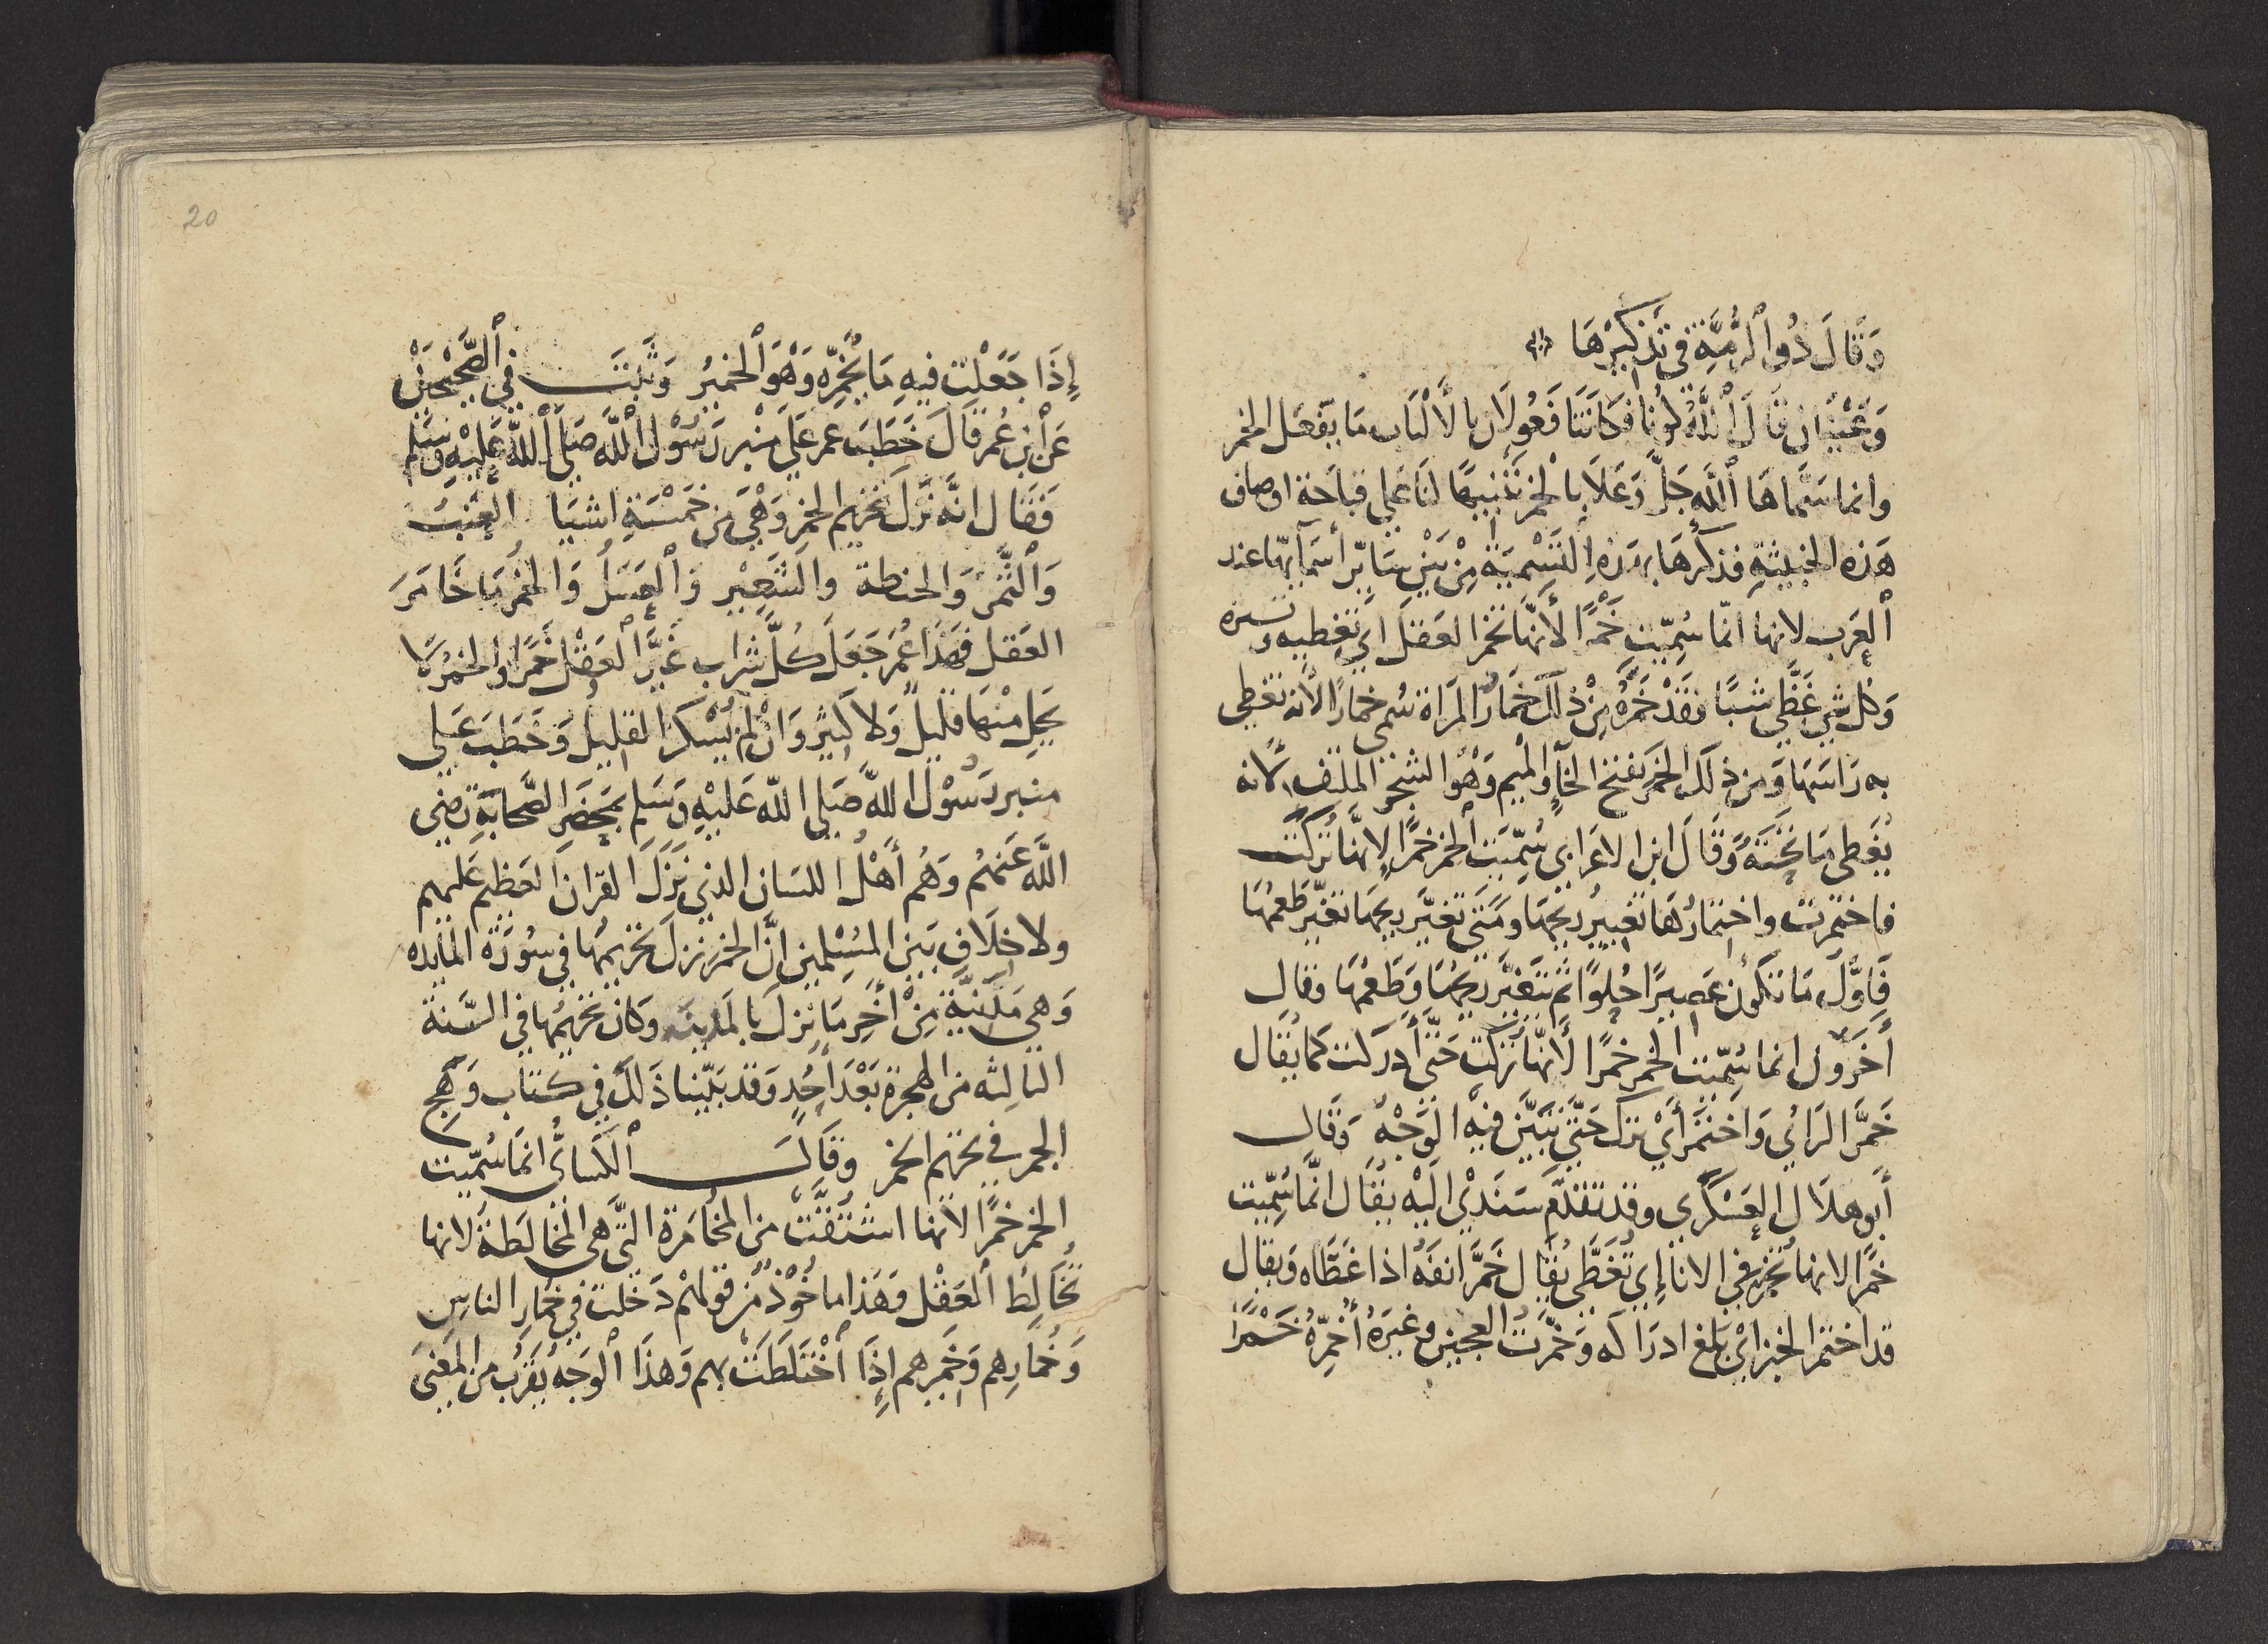 وَقَالَ ذُو ٱلرُّمَّةِ فى تَذكيْرهَا
وَعَيْنَانِ قَالَ ٱللَّهُ كُونَا فَكَانَتَا فَعُولَانِ بالأَلْبَاب مَا يَفْعَل الخمر
وانما سَمَّاهَا ٱللَّه جَلَّ وَعَلَا بِالخمر تَنْبيهًا لنَا عَلى قباحَة اوصاف
هَذه الخبيثةِ فذكرهَا بهَذهِ التَسْمِيَة مِنْ بَيْنِ سَايرِ أسمَآيهَا عند
ٱلعَرب لانها انّما سُمِّيَت خَمْرًا لأنّها تخمر العَقل اَي تُغطيه وتستره
وَكل شَيْ غَطَّى شيًا فقَدْ خَمَّرَهُ مِنْ ذلك خمَارُ المَراة سُمى خمارًا لانه تغطى
به رَاسَهَا وَمن ذلكَ الخَمَر بفتح الخآءِ والْميم وَهُو الشجَر الملتف لانه
يُغَطى مَا تحْتَهُ وَقَالَ ابن الاعرَابى سُمِّيَت ٱلخمر خمرًا لانهَّا تُركَتْ
فاختمرت واختمارُهَا تغييرُ ريحهَا ومَتى تغيَّر ريحهَا تغيّر طَعمُهَا
فَاوَّلُ مَا تكُون عَصيرًا حُلوًا ثم يتغيَّر ريحُهَا وَطَعمُهَا وقال
أخَرُون انما سُمّيَت الخمر خمرًا لأَنهّا تركت حَتّى أدركت كَما يُقَال
خَمَّرَ الرَائى وَاختمَرَ أيْ ترك حَتَّى تبيَّن فيه الوَجْهُ وَقَال
أبَو هِلاَل العَسْكَرى وقد تقدّم سَنَدىْ اليْه يُقَال انّما سُمِّيت
خمرًا لانها تخمّر فى الانآءِ اى تُغَطَّى يُقَال خَمَّرَ انفَهُ اذا غَطَّاه وَيقَال
قد اختمَر الخبز اىْ بَلغ ادرَاكه وَخمَّرتُ العجين وغيرَهُ أُخَمِّرهُ خَمْرًا
20
إِذَا جَعَلْتَ فيهِ مَا يُخَمِّرُه وَهْوَ ٱلخميرُ وَثَبَتَ في ٱلصَّحيْحَيْن
عَن ٱبْن عُمر قَالَ خَطَبَ عمر عَلَى مِنْبر رَسُوْل ٱللَّه صَلى ٱللَّه عَلَيْهِ وَسَلم
فَقَال انَّه نَزَلَ تحْريم الخمر وَهْيَ مِن خَمْسَةِ اشيَا العِنَبُ
وَٱلتَّمْر وَالحنطة والشَعِيْر وَٱلعَسَلُ وَالخَمْرُ مَا خَامَرَ
العَقل فهَذا عُمَر جَعَلَ كُلَّ شَرَاب غَيَّرَ ٱلعَقْل خَمرًا والخَمرُ لَا
يَحِلِ مْنهَا قليلٌ وَلا كثيْر وَانْ لَمْ يُسْكر القليل وَخَطَبَ عَلى
منبر رَسُوْل اللهَّ صَلى اللّه عَليْهِ وَسَلم بِمَحْضَرِ الصَّحابَةِ رَضى
اللَّه عَنهُم وَهُم أَهْلُ اللسَان الذى نَزَلَ القران العَظيم عَليهم
ولا خِلَافَ بَيَن المسُلمين انَّ الخمر نزلَ تحْريمهَا في سُورَة المائده
وَهي مَدَنيَّة مِنْ أخِر مَا نزلَ بالمَدينَه وَكَان تحْريمُهَا في السَّنة
الثالِثه من الهجرة بَعْدَ أُحُدٍ وَقد بَيّنا ذَلكَ فى كتاب وَهَج
الجمر في تحريم الخمر وَقَالَ ٱلكسَائُّ انمَا سُمّيت
الخمر خمرًا لانهَا اشتُقَّتْ من المخُامَرة التَّى هى المخالَطَة لانها
تُخَالِطُ ٱلعَقْل وَهَذا ماخُوْذٌ من قولهْم دَخلتُ في خُمَارِ الناسِ
وَخُمارِهم وَخَمَرِهم إذَا ٱخْتَلَطَتَ بهم وَهذَا ٱلوَجهُ يَقرُب من المَعْنَى